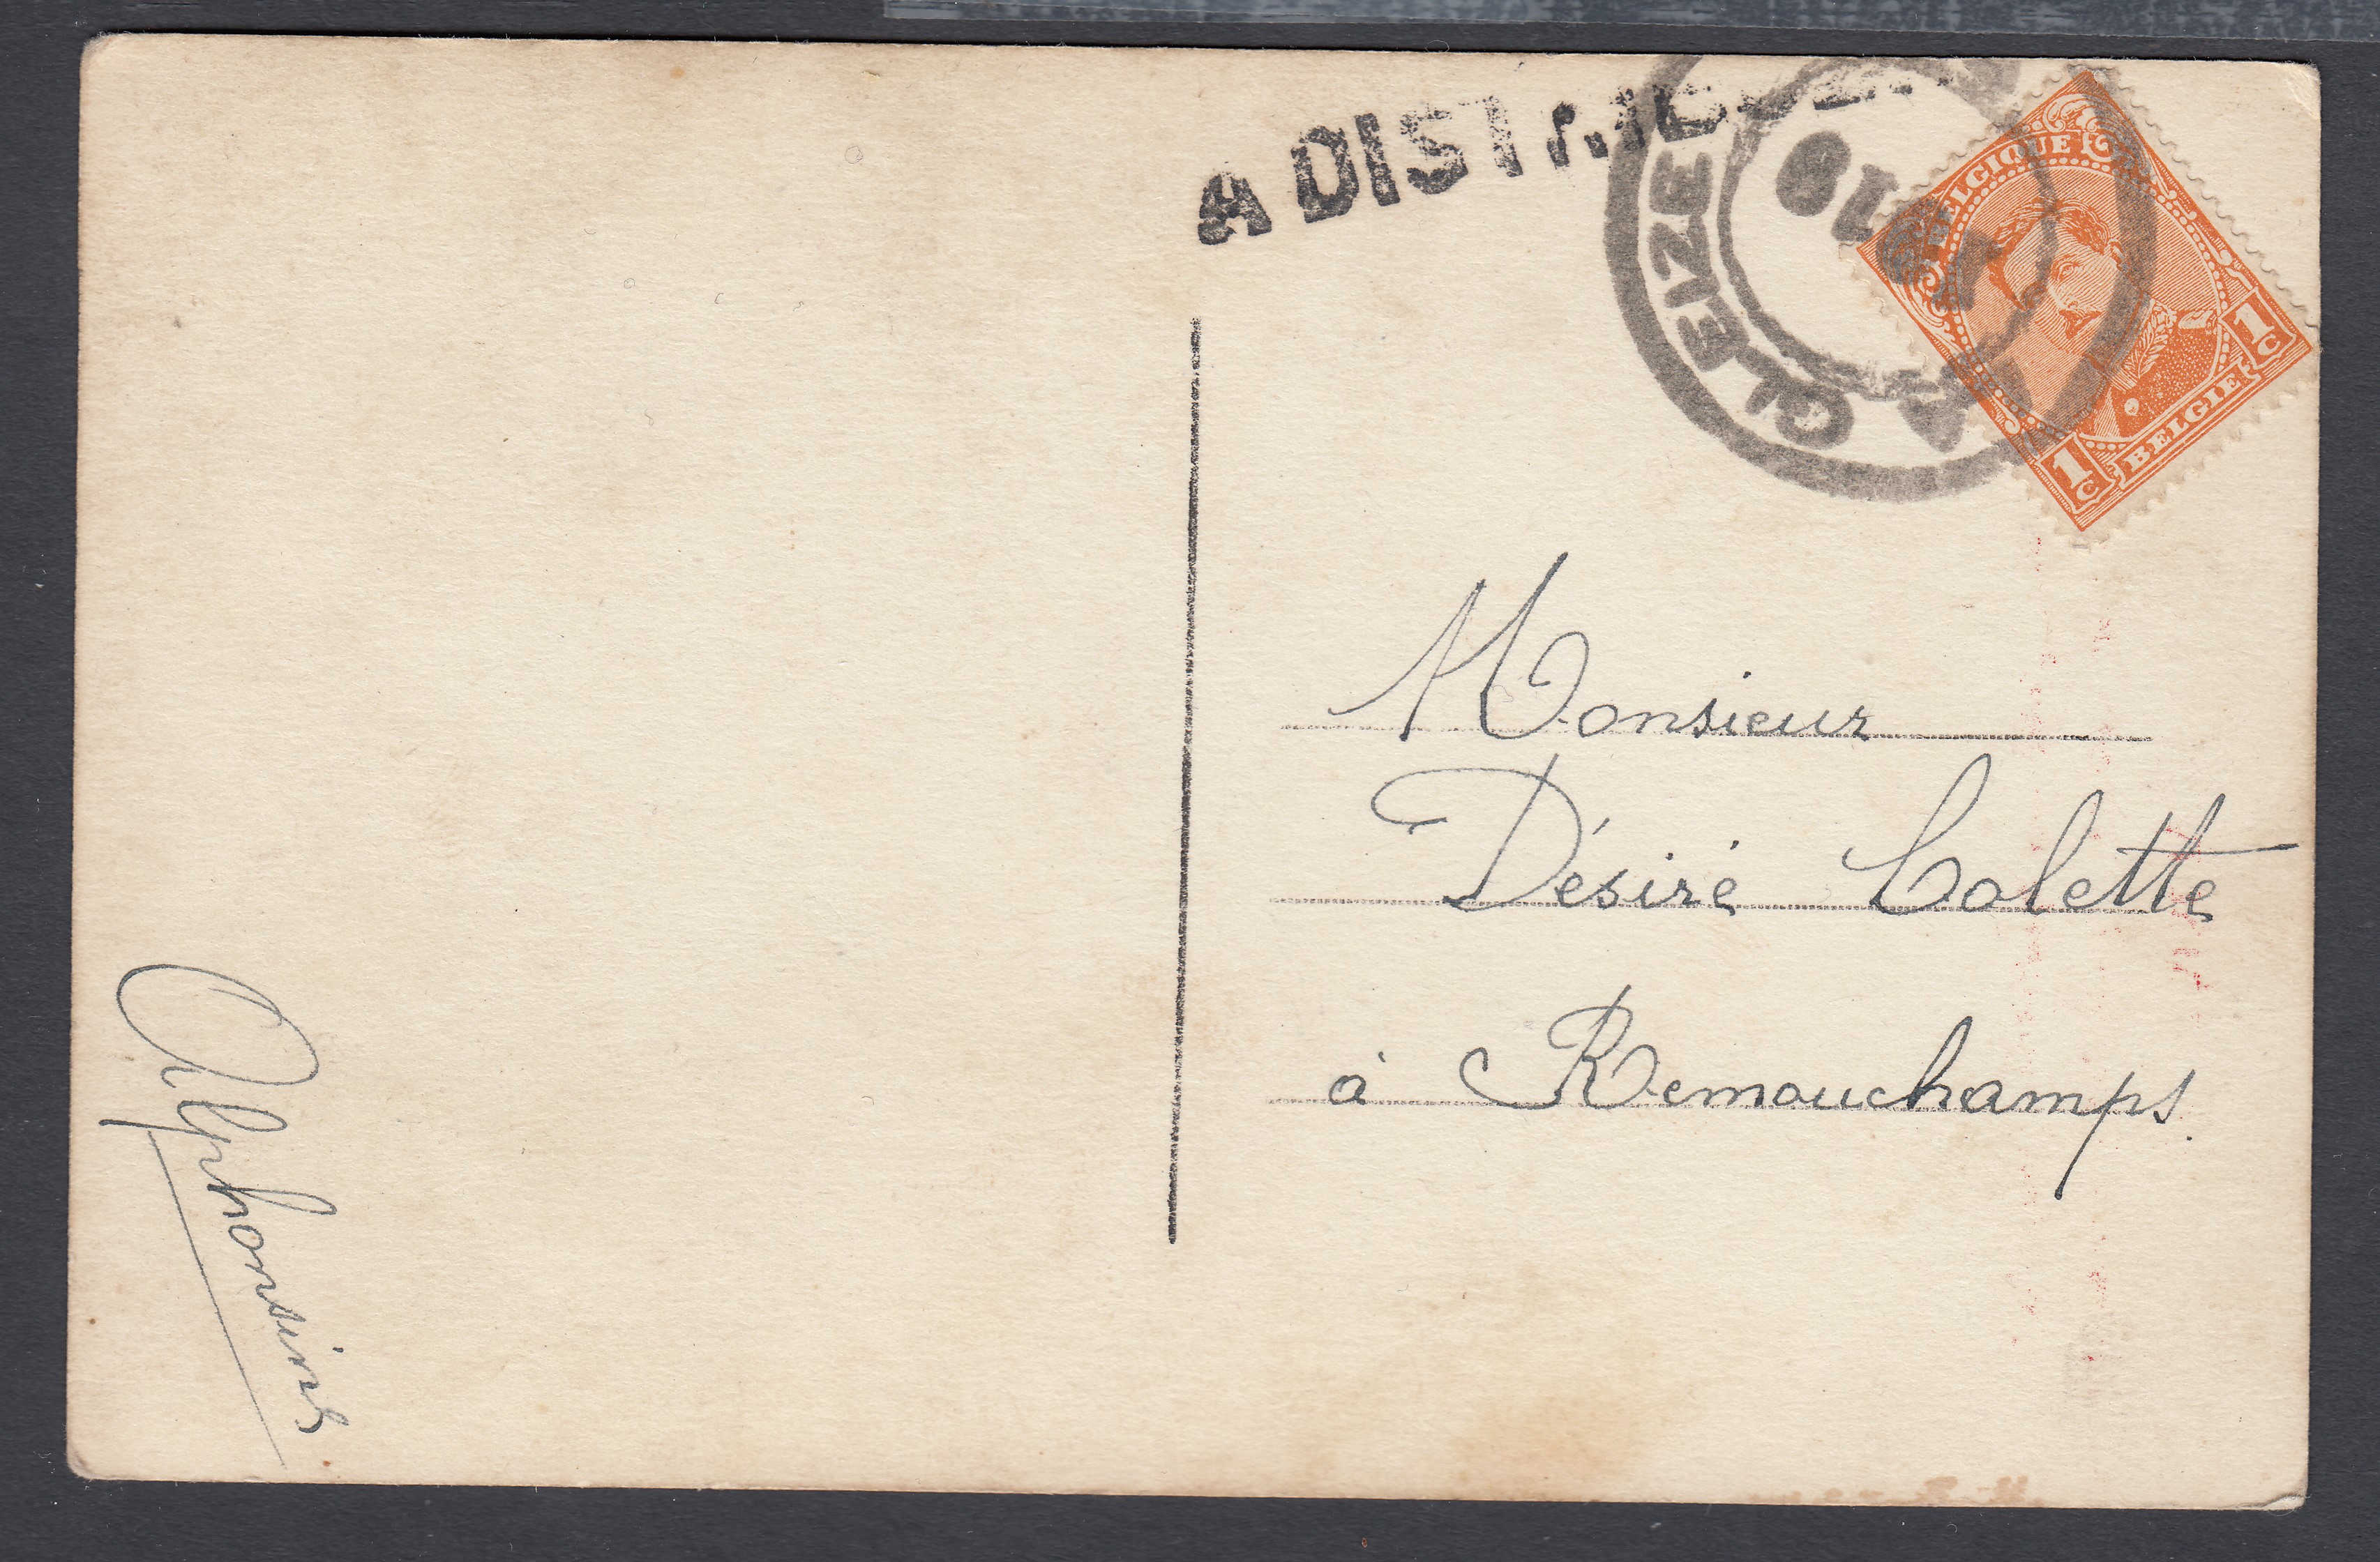 A DISTRIBUER
LA GLEIZE
BELGIQUE
1c
1c
BELGIE
Monsieur
Désiré Colette
à Remouchamps.
Alphonsine